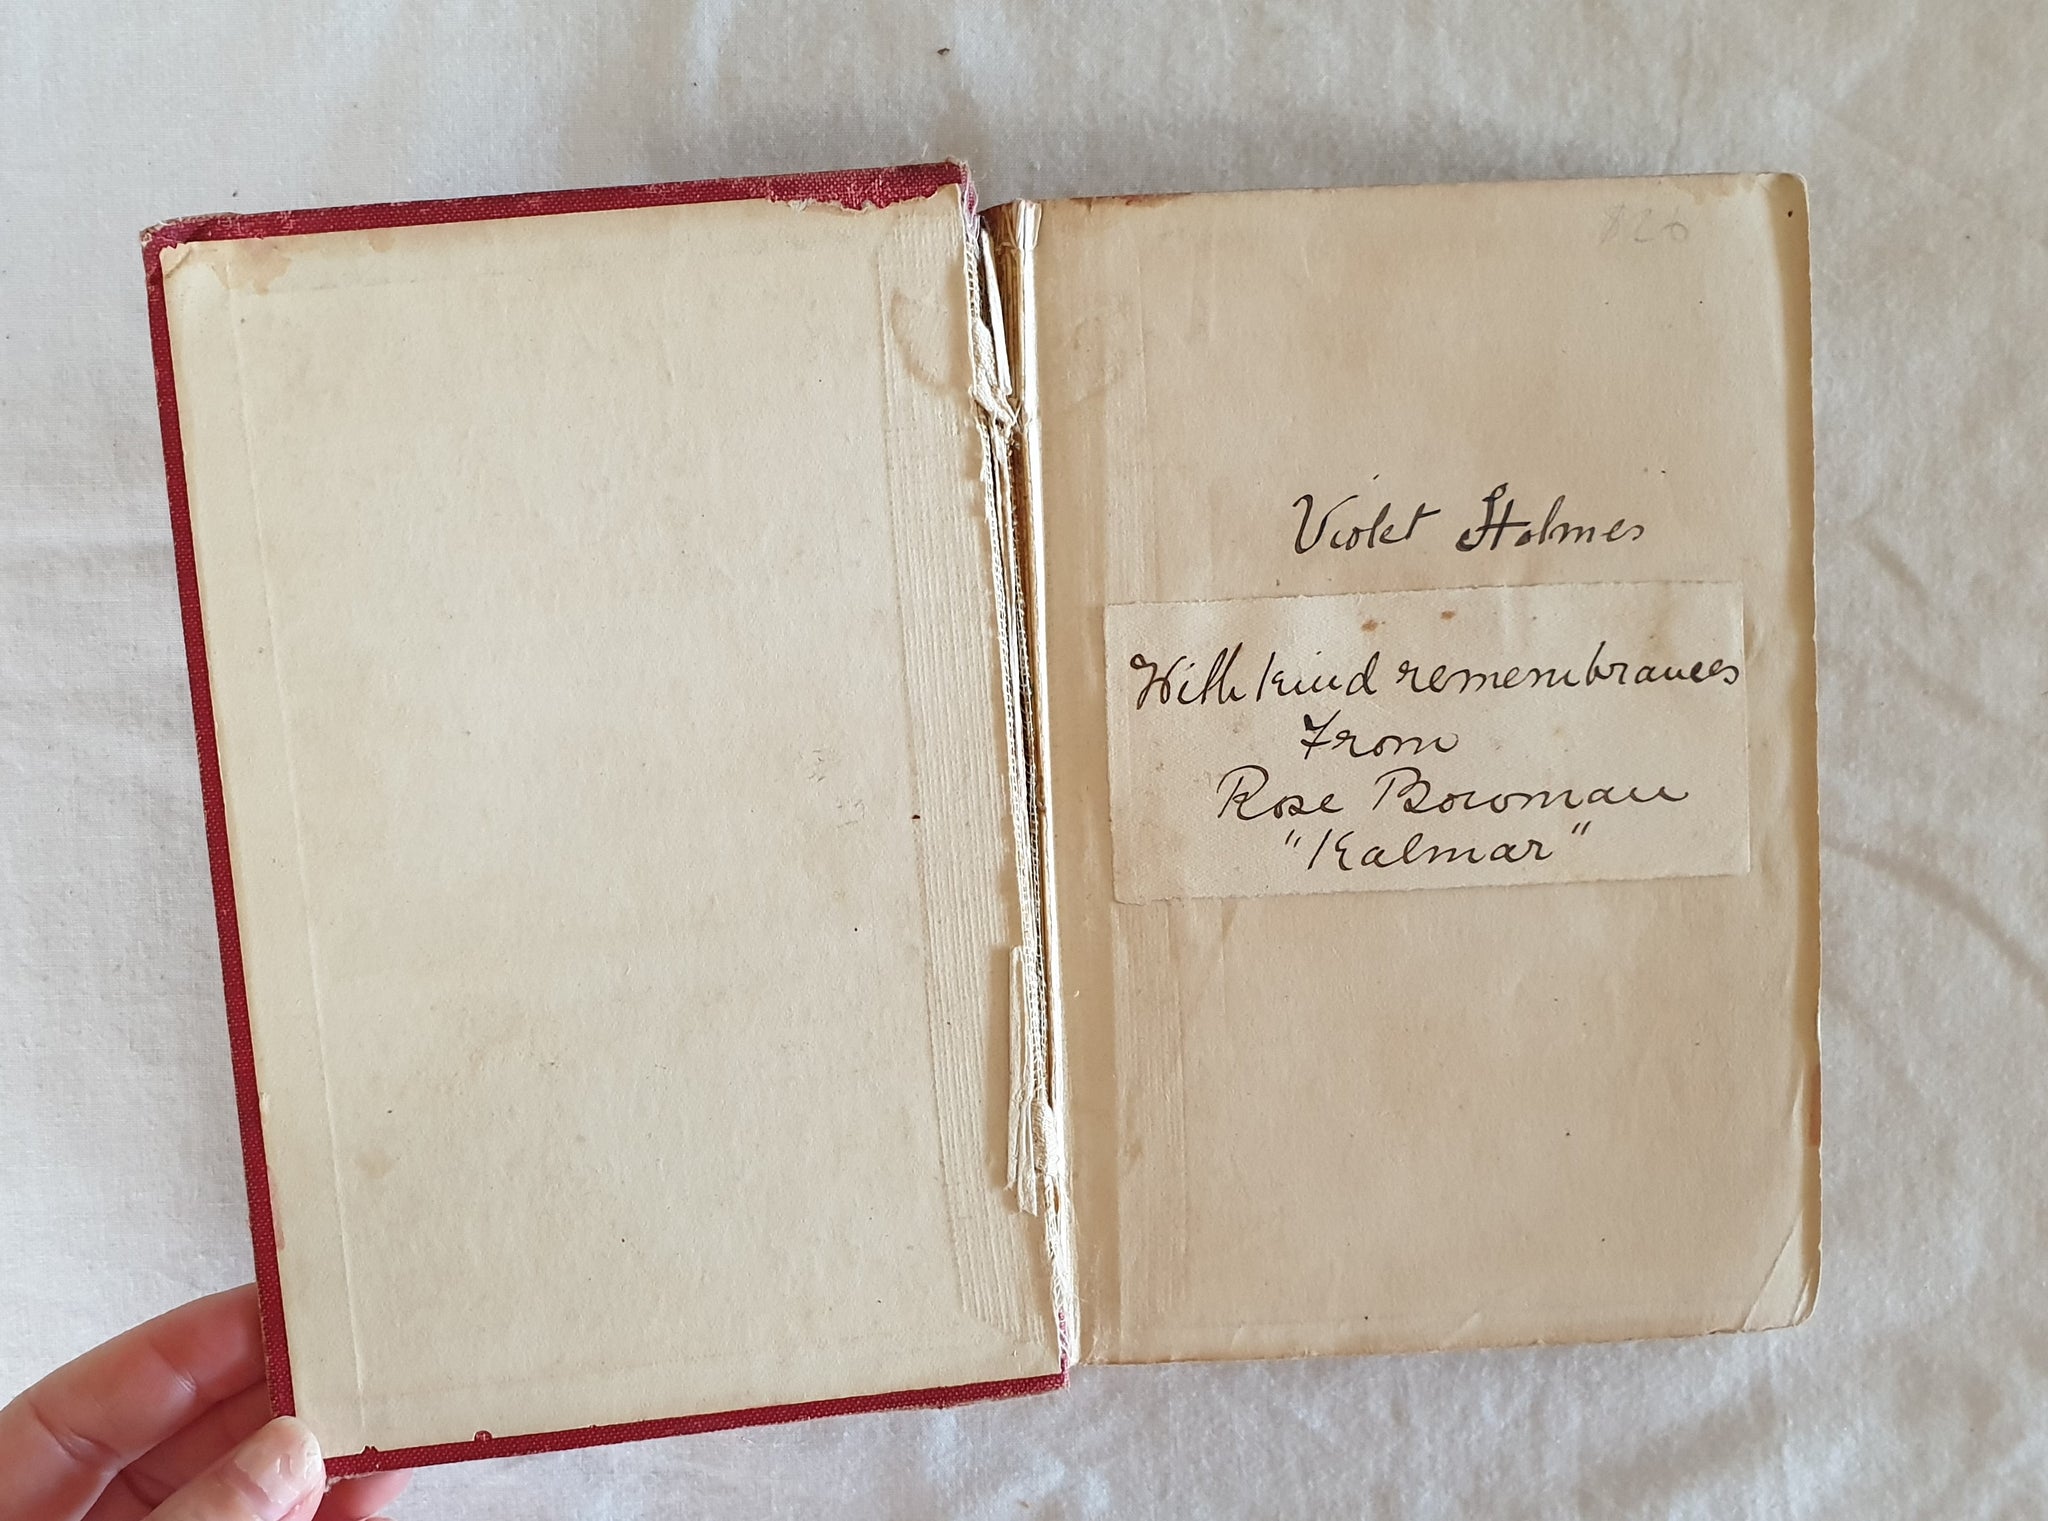 $20
Violet Holmes
With kind remembrances
From
Rose Bowman
"Kalmar"